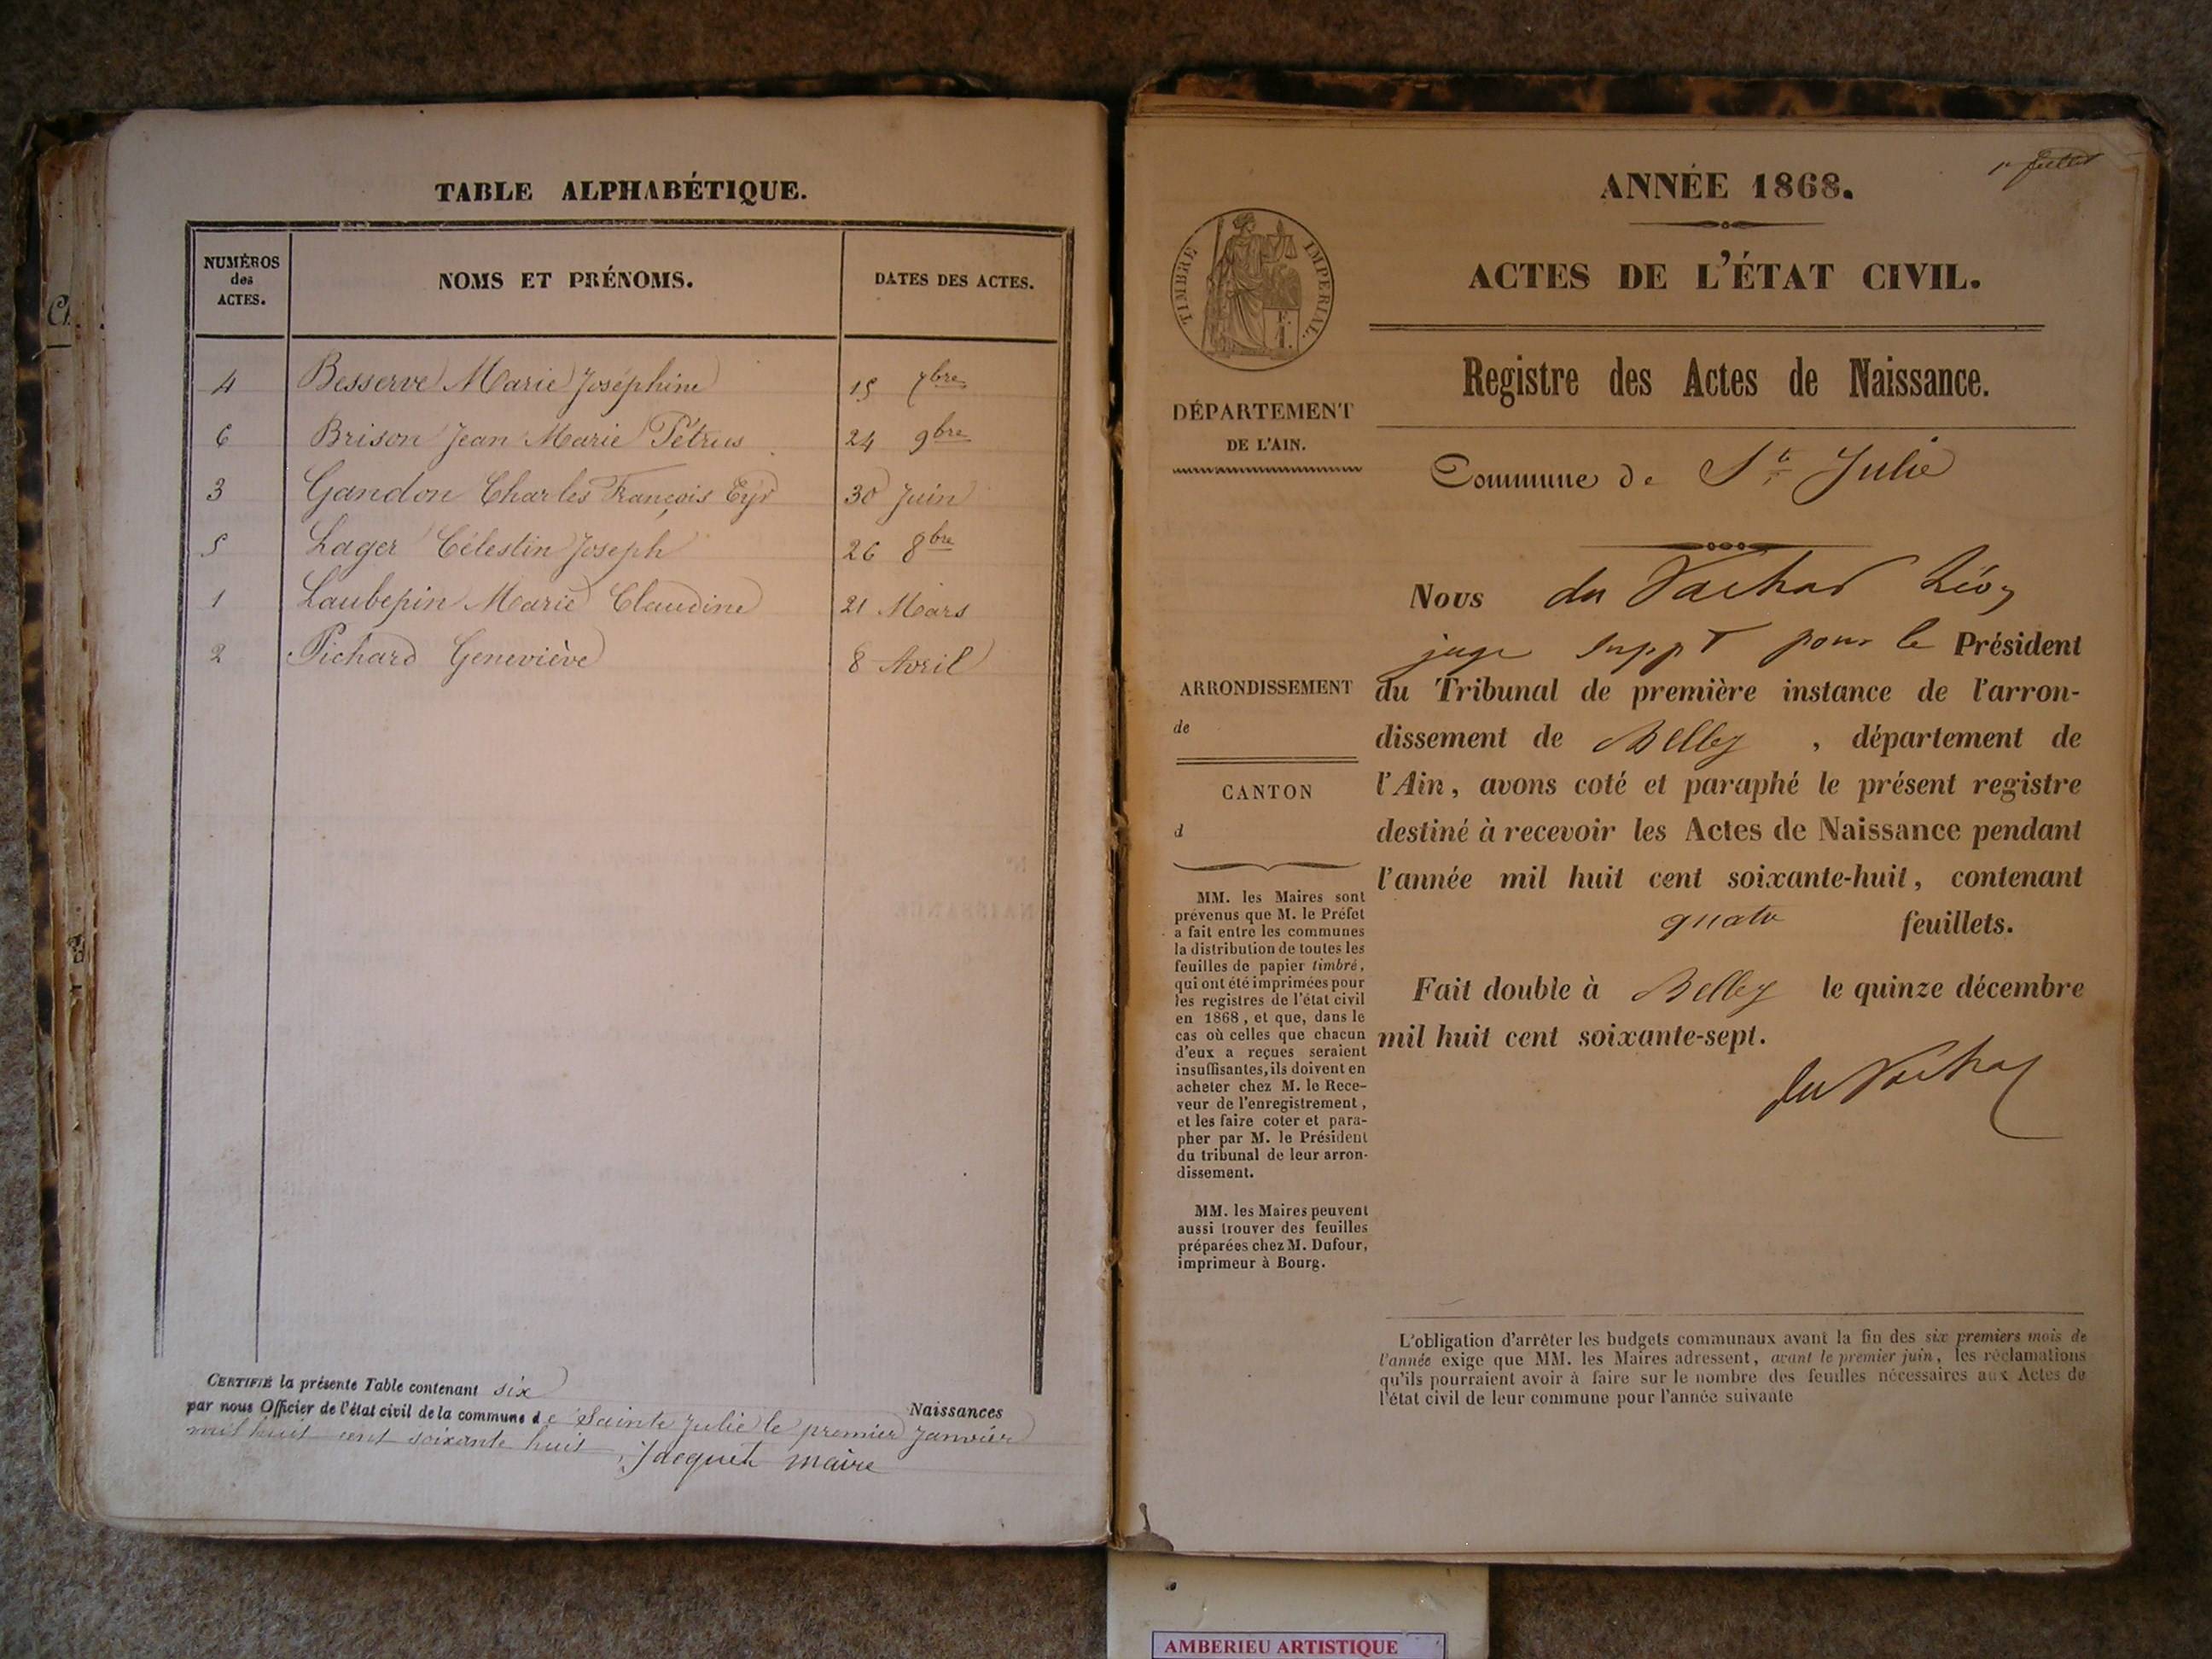 TABLE ALPHABÉTIQUE.
NUMÉROS
des
ACTES.
NOMS ET PRÉNOMS.
DATES DES ACTES.
4 Besserve Marie Joséphine 15 7bre
6 Brison Jean Marie Pétrus 24 9bre
3 Gandon Charles François Eyr 30 Juin
5 Lager Célestin Joseph 26 8bre
1 Laubepin Marie Claudine 21 Mars
2 Pichard Geneviève 8 Avril
CERTIFIÉ la présente Table contenant six
Naissances
par nous Officier de l'état civil de la commune de Sainte Julie le premier Janvier
mil huit cent soixante huit
Jacquet maire
1er feuillet
ANNÉE 1868.
ACTES DE L'ÉTAT CIVIL.
TIMBRE IMPERIAL.
Registre des Actes de Naissance.
DÉPARTEMENT
DE L'AIN.
Commune de Ste Julie
Nous du Vachat Léon
juge suppt pour le Président
du Tribunal de première instance de l'arron-
dissement de Belley , département de
l'Ain, avons coté et paraphé le présent registre
destiné à recevoir les Actes de Naissance pendant
l'année mil huit cent soixante-huit, contenant
quatre feuillets.
Fait double à Belley le quinze décembre
mil huit cent soixante-sept.
du Vachat
ARRONDISSEMENT
de
CANTON
d
MM. les Maires sont
prévenus que M. le Préfet
a fait entre les communes
la distribution de toutes les
feuilles de papier timbré,
qui ont été imprimées pour
les registres de l'état civil
en 1868, et que, dans le
cas où celles que chacun
d'eux a reçues seraient
insuffisantes, ils doivent en
acheter chez M. le Rece-
veur de l'enregistrement,
et les faire coter et para-
pher par M. le Président
du tribunal de leur arron-
dissement.
MM. les Maires peuvent
aussi trouver des feuilles
préparées chez M. Dufour,
imprimeur à Bourg.
L'obligation d'arrêter les budgets communaux avant la fin des six premiers mois de
l'année exige que MM. les Maires adressent, avant le premier juin, les réclamations
qu'ils pourraient avoir à faire sur le nombre des feuilles nécessaires aux Actes de
l'état civil de leur commune pour l'année suivante
AMBERIEU ARTISTIQUE